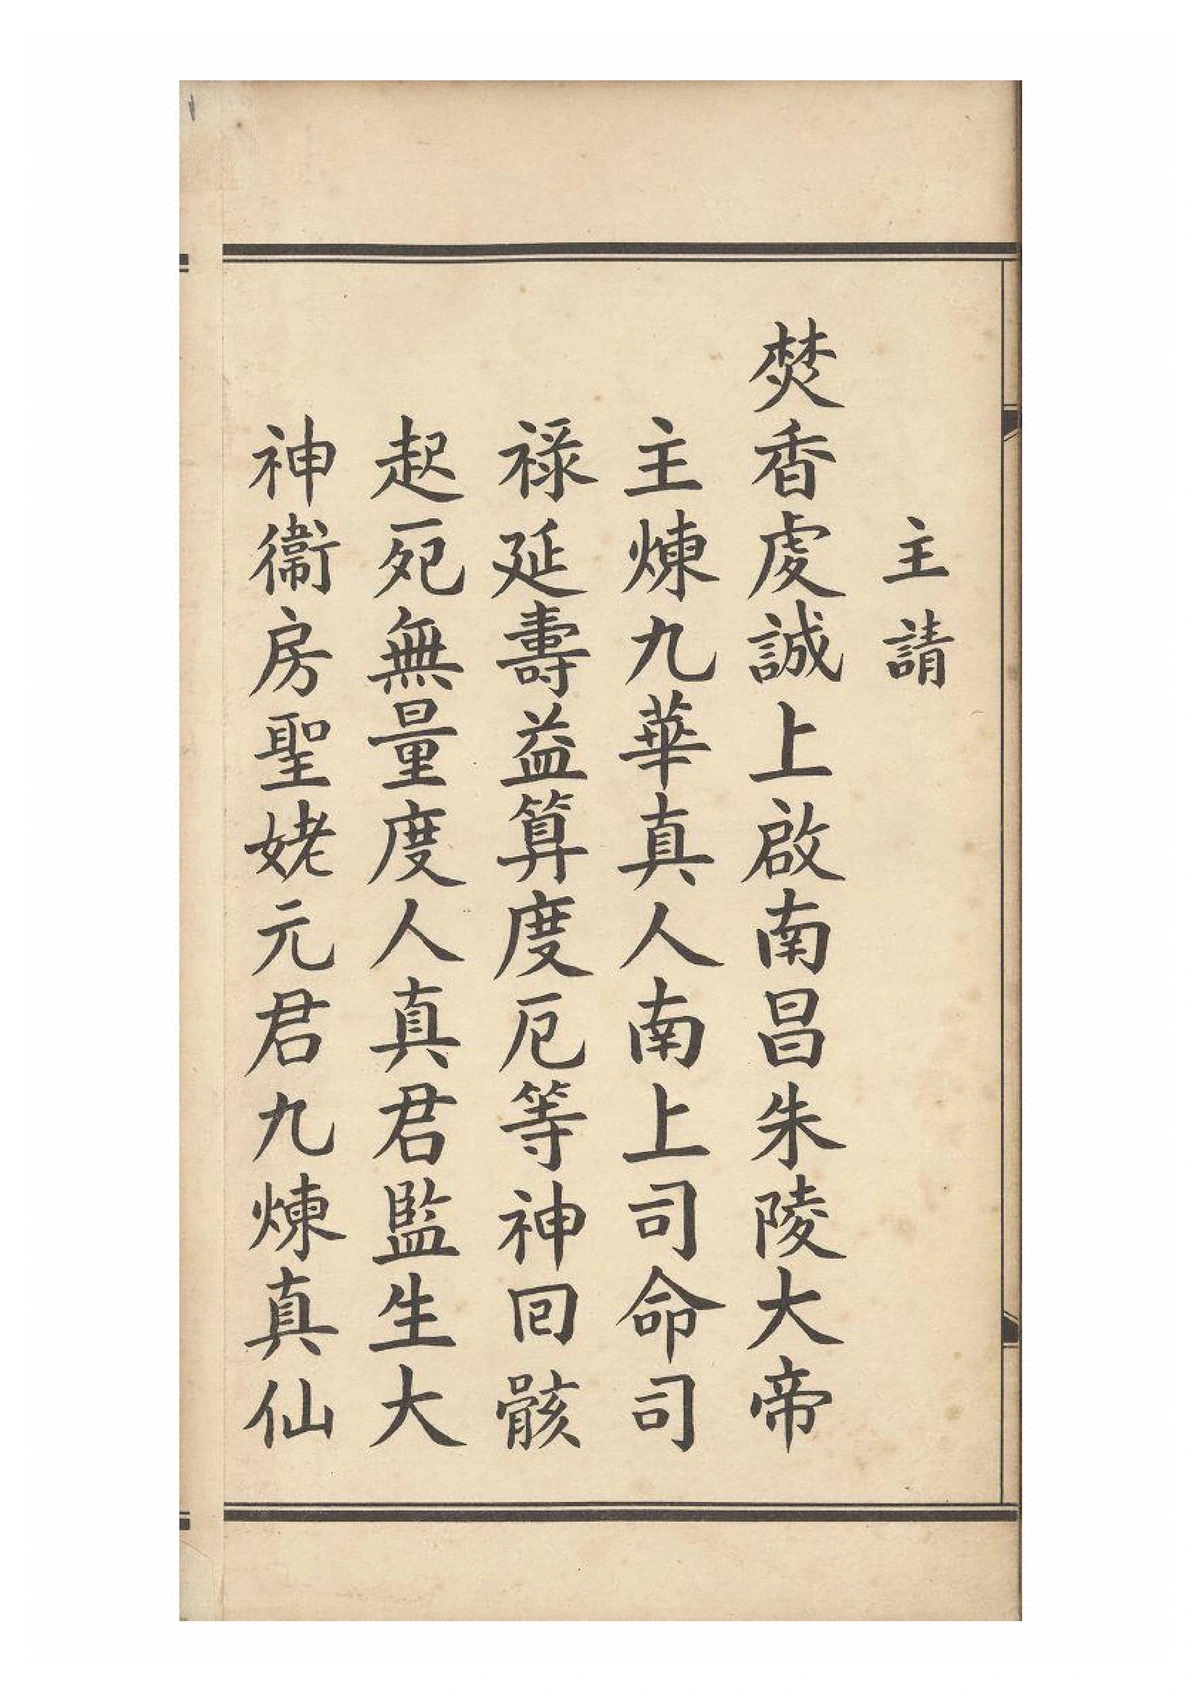 主請
焚香虔誠上啟南昌朱陵大帝
主煉九華真人南上司命司
祿延壽益算度厄等神回骸
起死無量度人真君監生大
神衞房聖姥元君九煉真仙